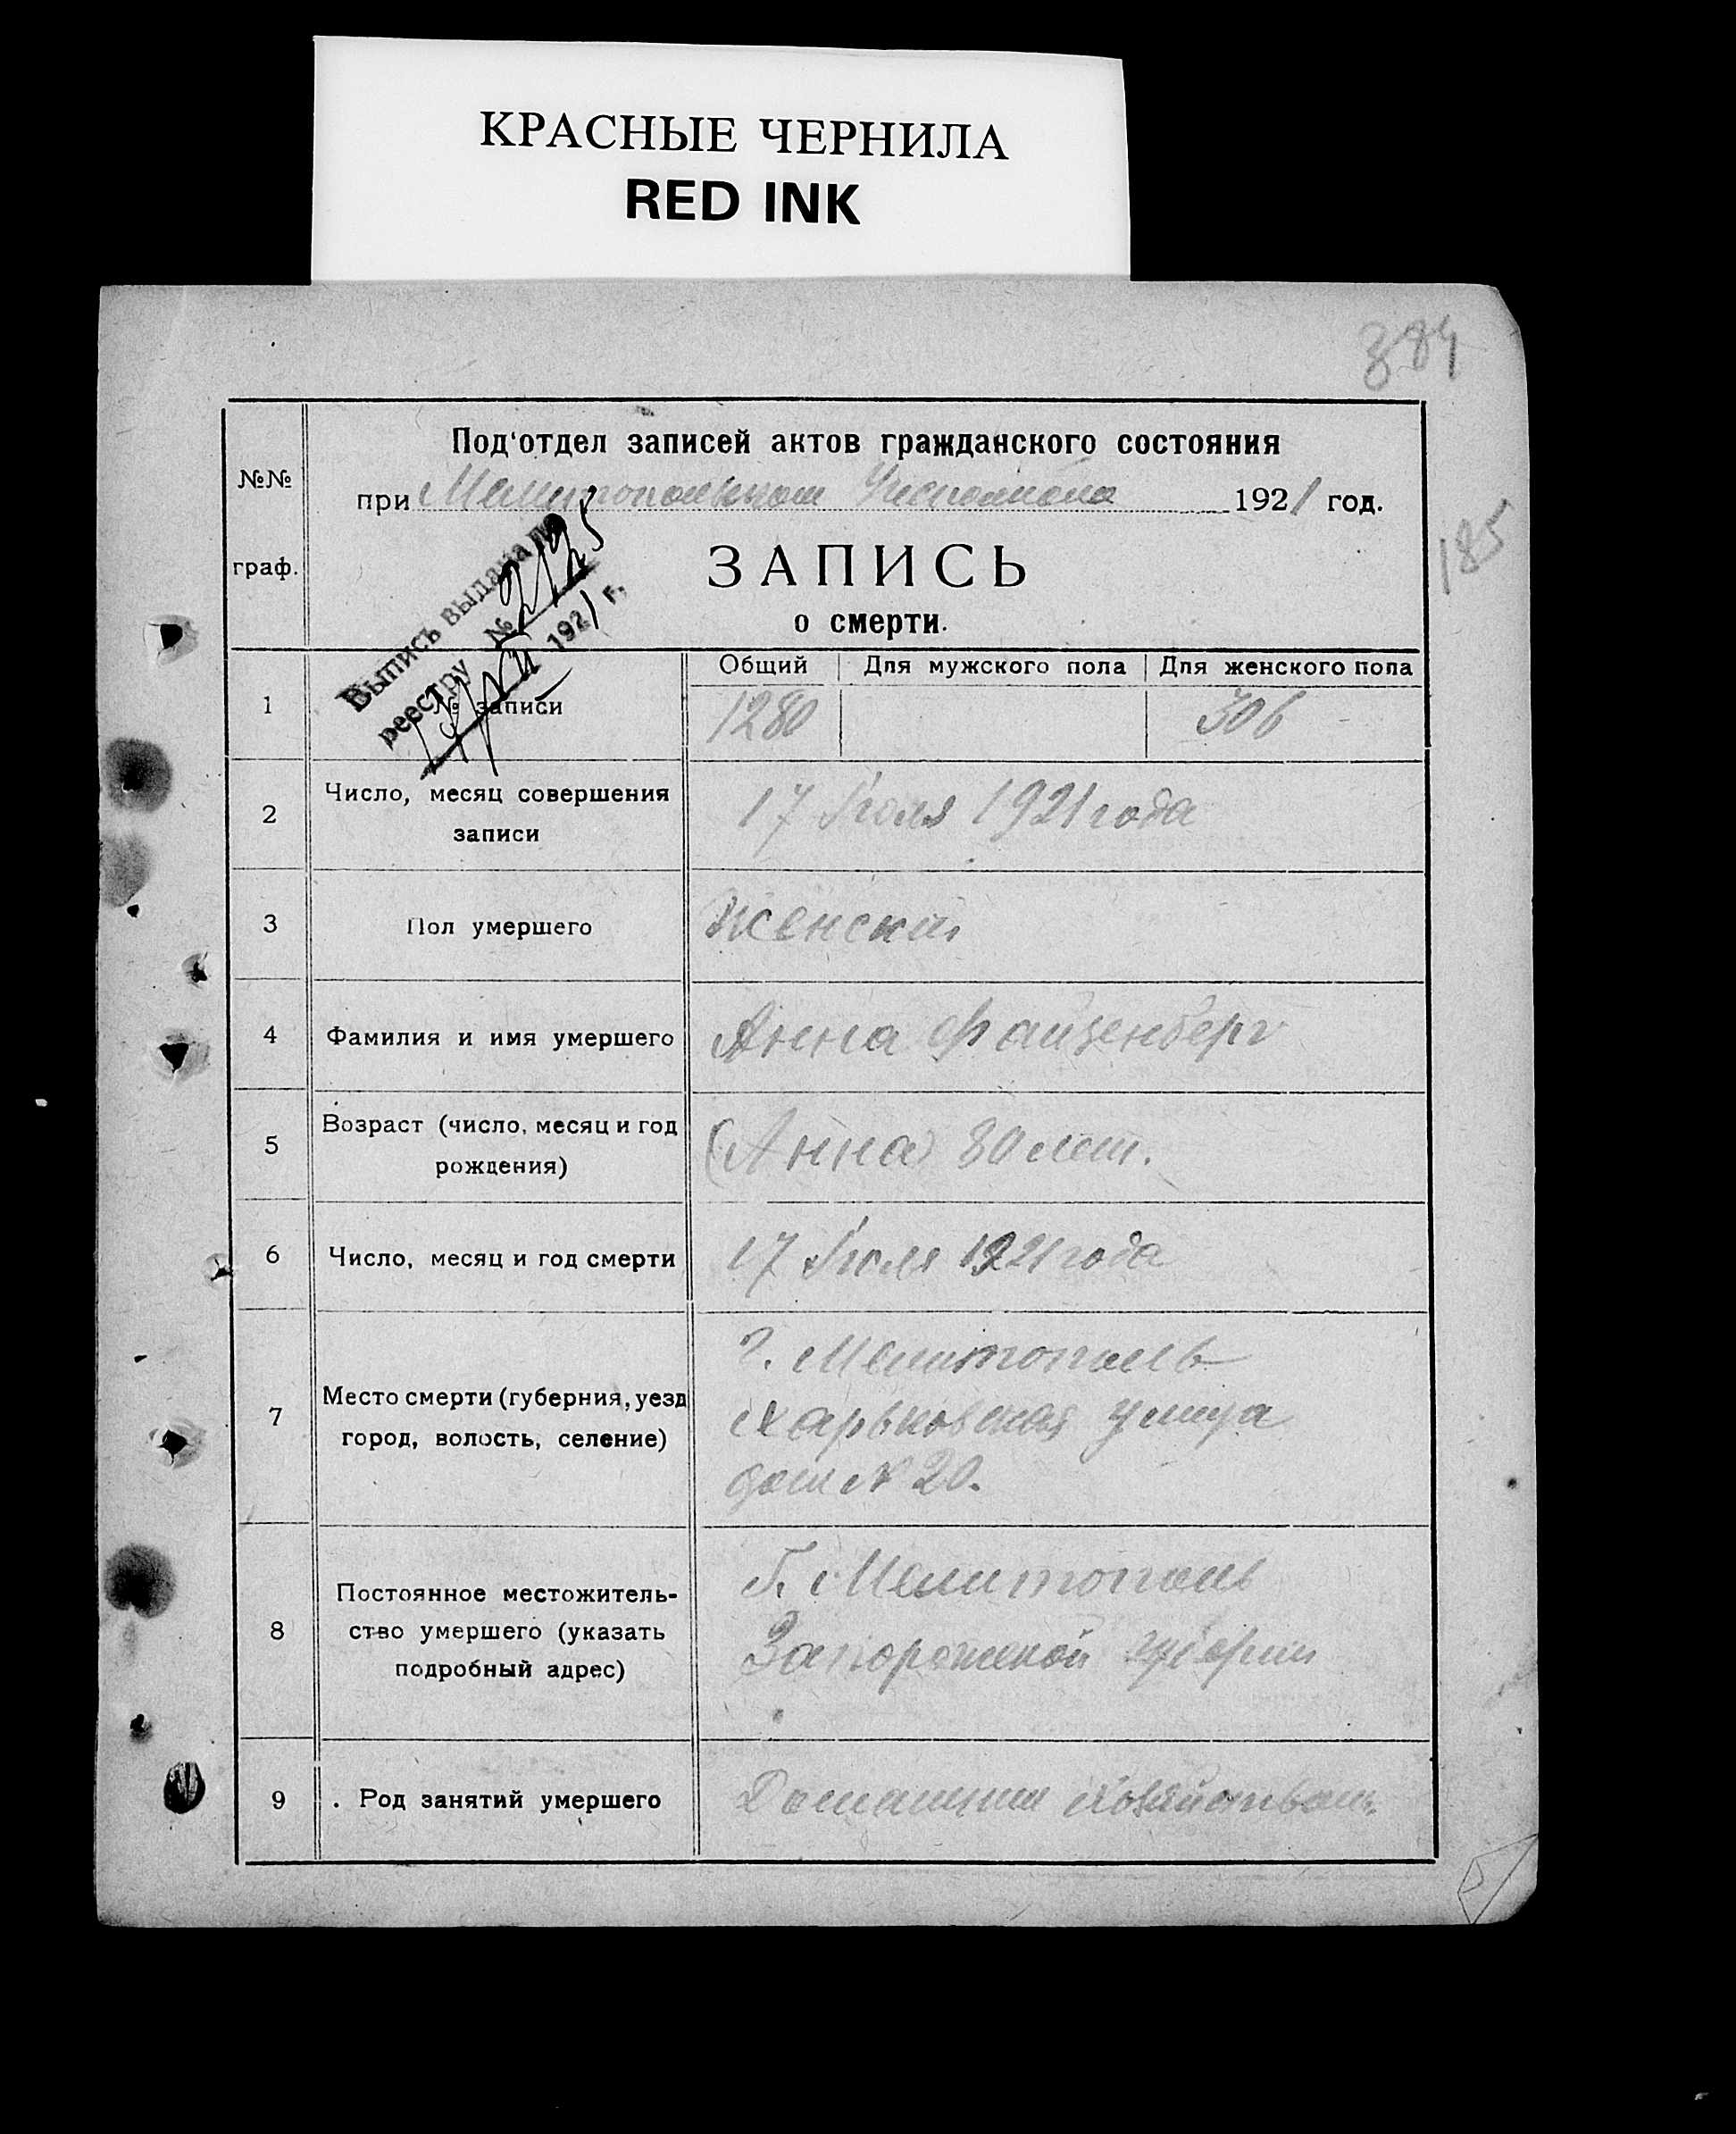 КРАСНЫЕ ЧЕРНИЛА
RED INK
384
№№
граф.
Под‘отдел записей актов гражданского состояния
при Мелитопольском Исполкома 1921 год.
185
ЗАПИСЬ
о смерти.
Выпись выдана по
реестру № 2135
1921 г.
1
№ записи
Общий
Для мужского пола
Для женского пола
1280
306
2
Число, месяц совершения
записи
17 Июля 1921 года
3
Пол умершего
Женский
4
Фамилия и имя умершего
Анна Файценберг
5
Возраст (число, месяц и год
рождения)
(Анна) 80 лет.
6
Число, месяц и год смерти
17 Июля 1921 года
7
Место смерти (губерния, уезд
город, волость, селение)
г. Мелитополь
Харьковская улица
дом № 20.
8
Постоянное местожитель-
ство умершего (указать
подробный адрес)
Г. Мелитополь
Запорожской губернии
9
. Род занятий умершего
Домашним хозяйством.